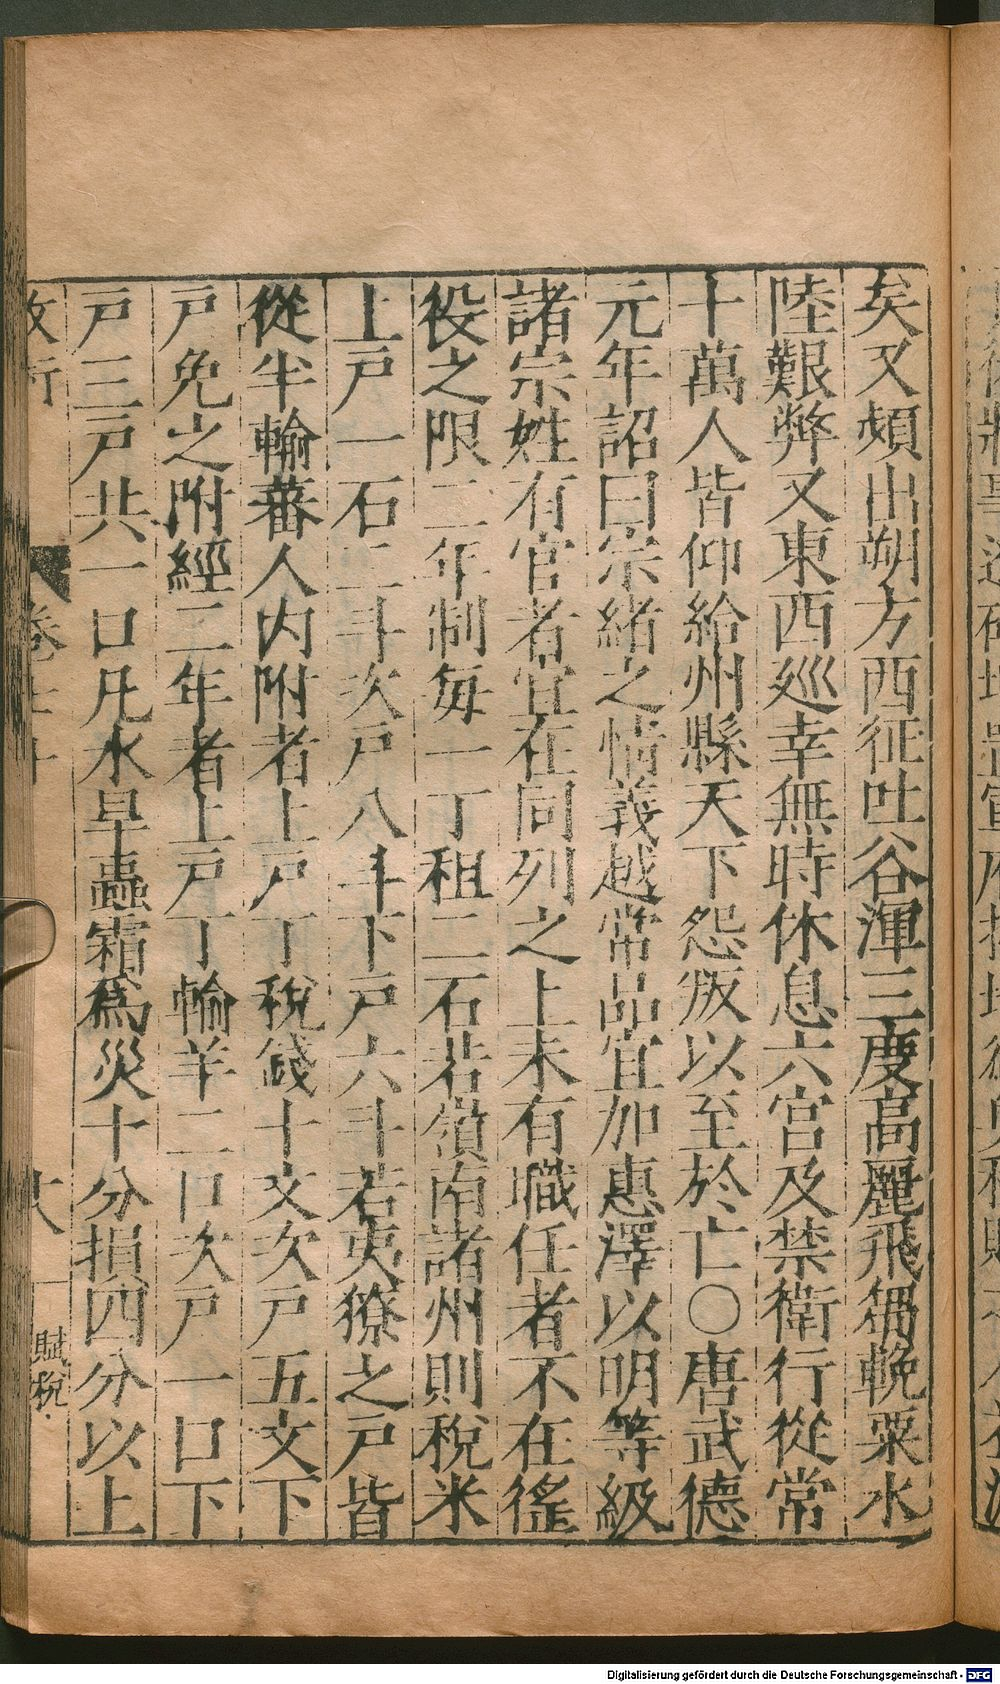 矣又頻出朔方西征吐谷渾三度高麗飛芻輓粟水
陸艱弊又東西廵幸無時休息六宮及禁衛行從常
十萬人皆仰給州縣天下怨叛以至於亡○唐武德
元年詔曰宗緒之情義越常品宜加惠澤以明等級
諸宗姓有官者宜在同列之上未有職任者不在徭
役之限二年制每一丁租二石若嶺南諸州則稅米
上戶一石二斗次戶八斗下戶六斗若夷獠之戶皆
從半輸蕃人內附者上戶丁稅錢十文次戶五文下
戶免之附經二年者上戶丁輸羊二口次戶一口下
戶三戶共一口凡水旱蟲霜爲災十分損四分以上
賦稅
Digitalisierung gefördert durch die Deutsche Forschungsgemeinschaft - DFG